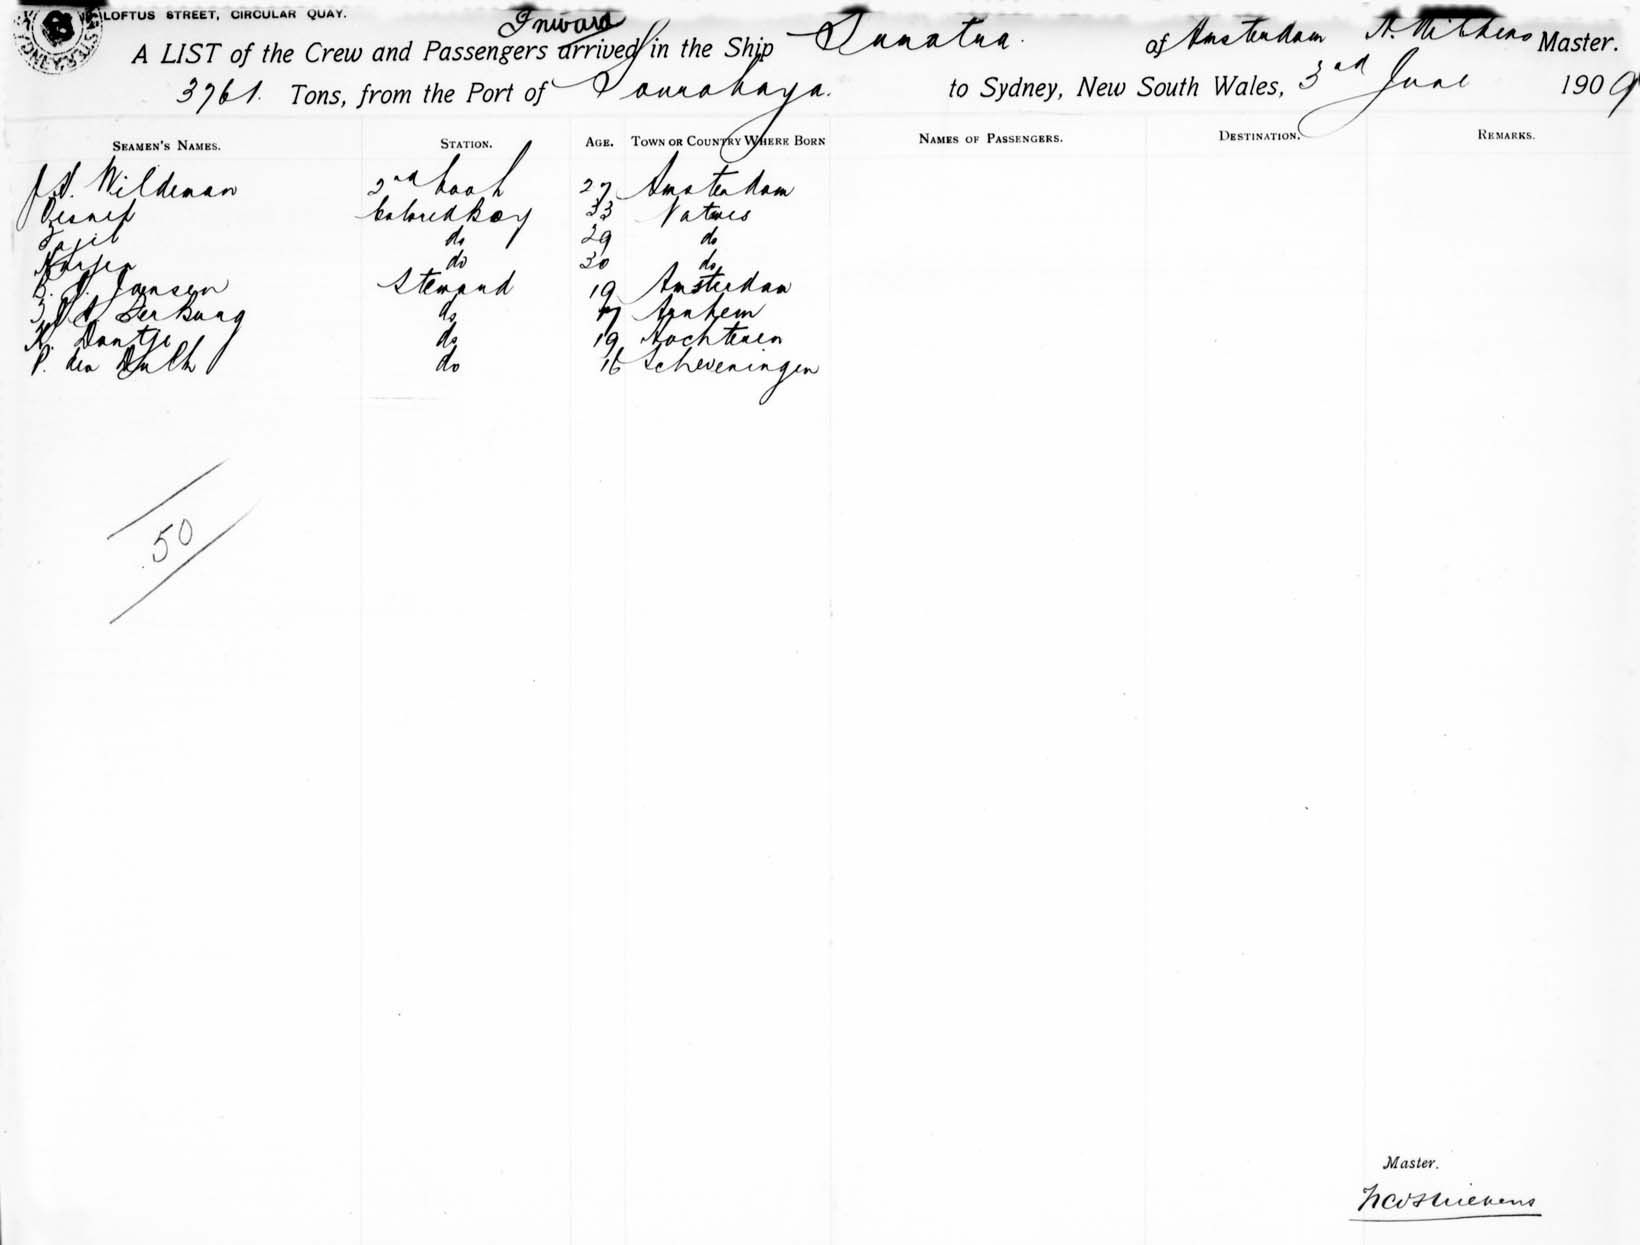 LOFTUS STREET, CIRCULAR QUAY.
Inward
A LIST of the Crew and Passengers arrived in the Ship Sumatra. of Amsterdam Master.
3761. Tons, from the Port of Sourabaya. to Sydney, New South Wales, 3rd June 1909
SEAMEN'S NAMES. STATION. AGE. TOWN OR COUNTRY WHERE BORN NAMES OF PASSENGERS. DESTINATION. REMARKS.
Wildeman 2nd Cook 27 Amsterdam
Colored Boy 33 Natives
do 29 do
do 30 do
Jansen Steward 19 Amsterdam
do 17 Arnhem
K. Dontje do 19
P. den Dulk do 16 Scheveningen
50
Master.